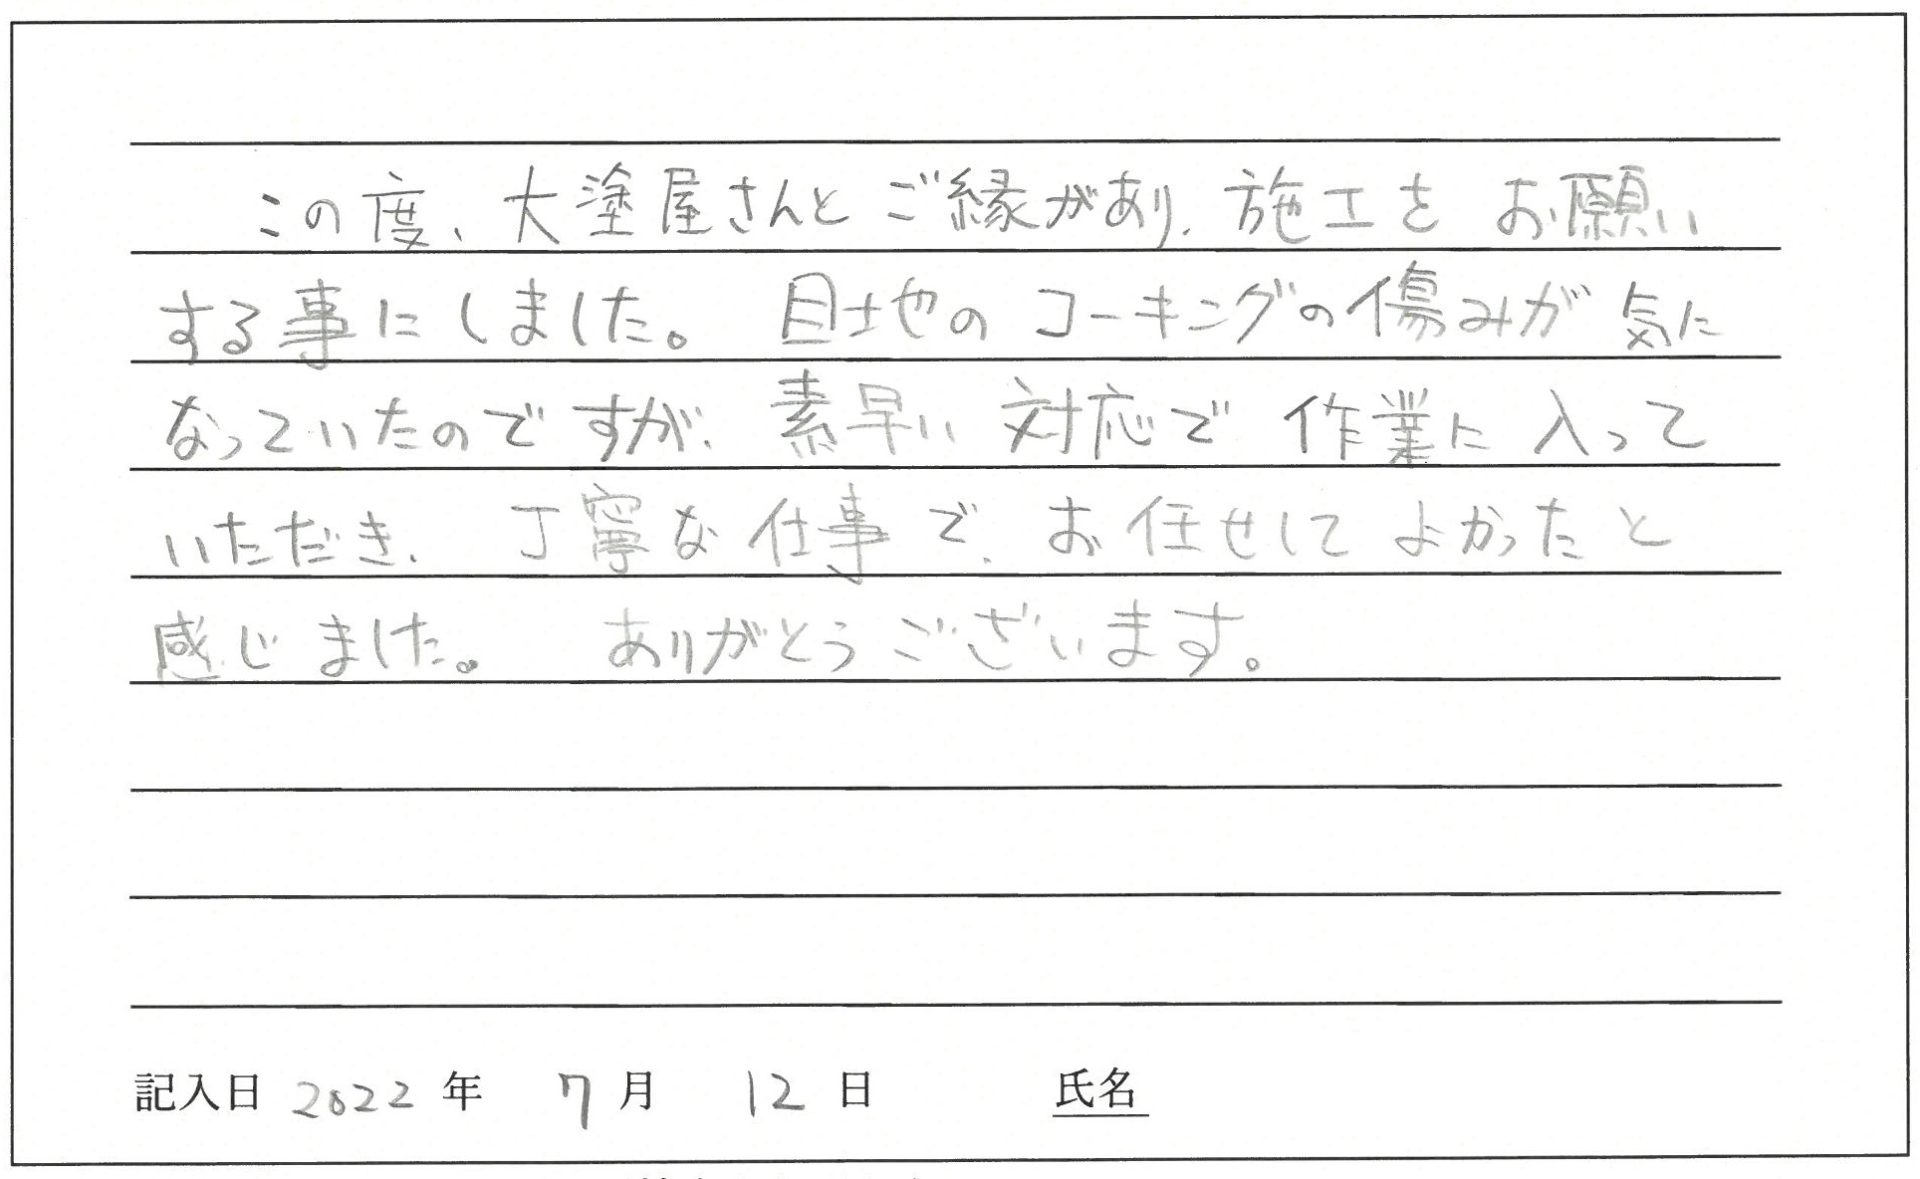 この度、大塗屋さんとご縁があり、施工をお願い
する事にしました。目地のコーキングの傷みが気に
なっていたのですが、素早い対応で作業に入って
いただき、丁寧な仕事で、お任せしてよかったと
感じました。ありがとうございます。
記入日 2022 年 7 月 12 日 氏名